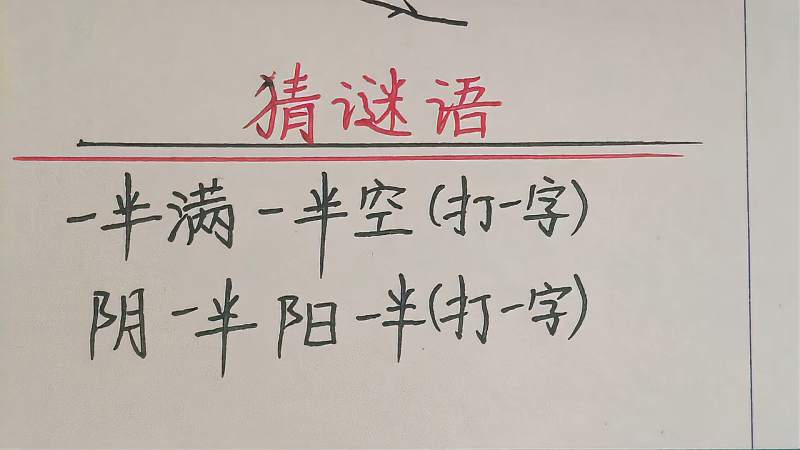 猜谜语
一半满一半空(打一字)
阴一半阳一半(打一字)